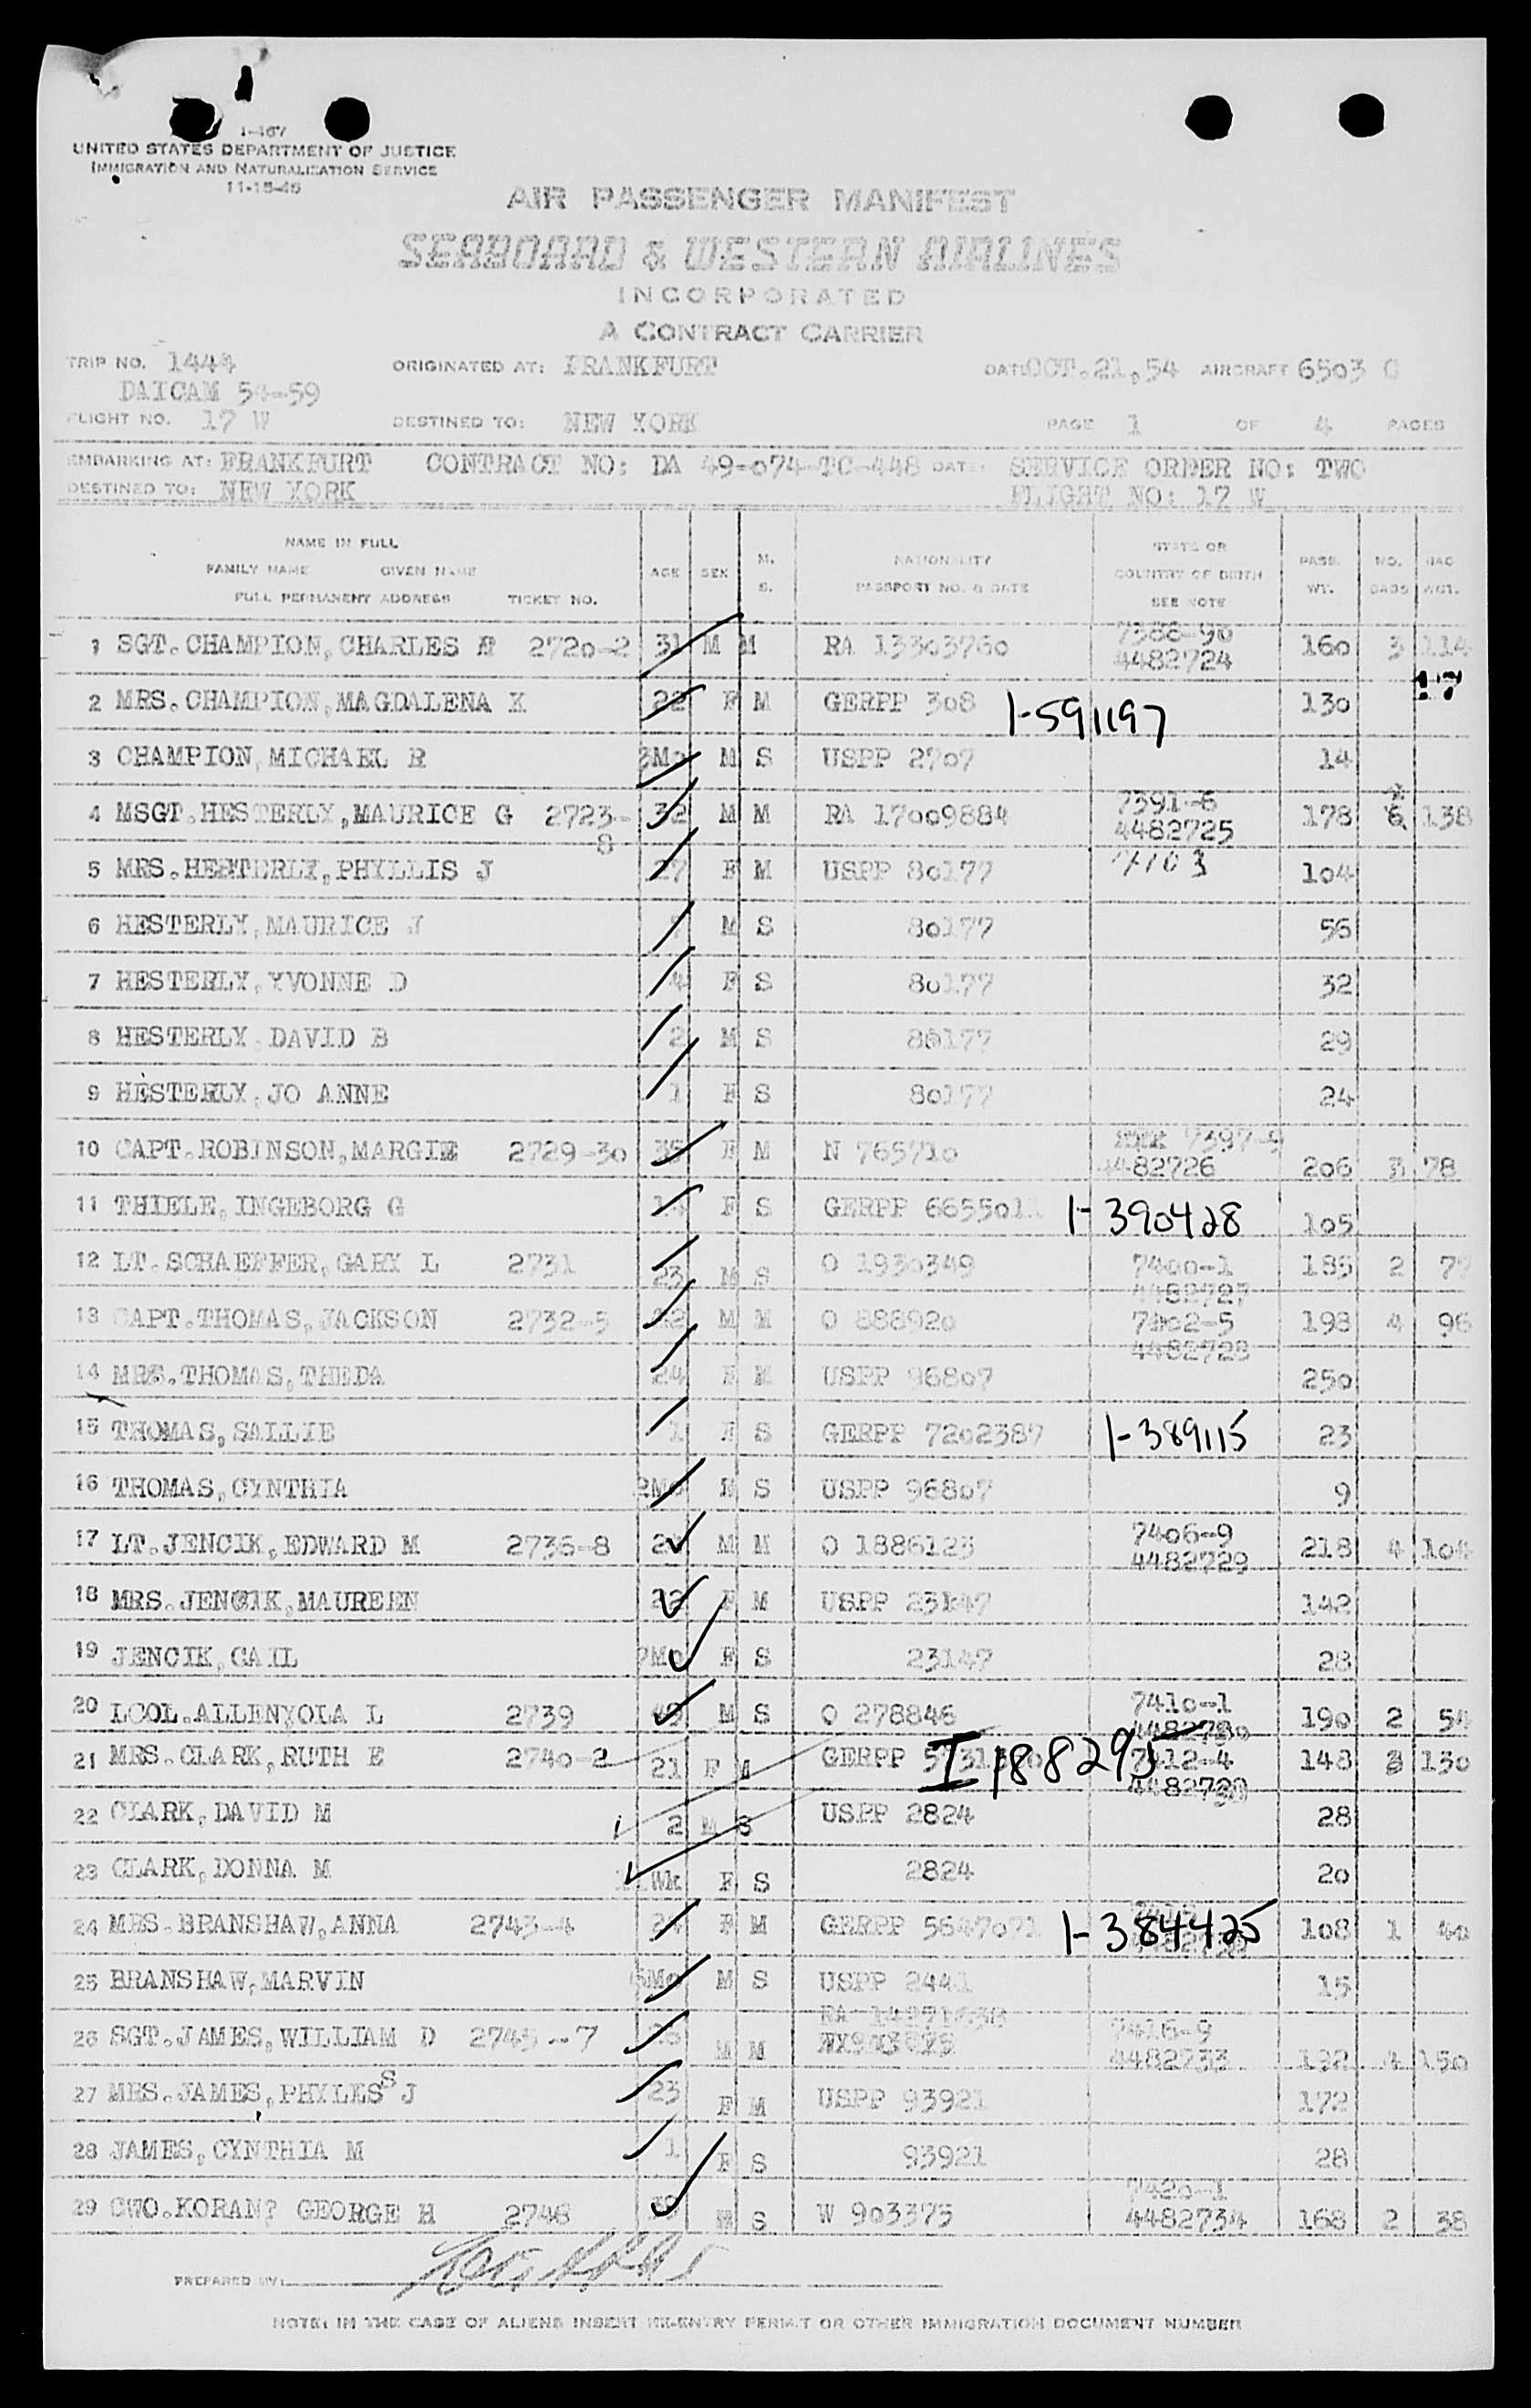 I-467
UNITED STATES DEPARTMENT OF JUSTICE
IMMIGRATION AND NATURALIZATION SERVICE
11-15-46
AIR PASSENGER MANIFEST
SEABOARD & WESTERN AIRLINES
INCORPORATED
A CONTRACT CARRIER
TRIP NO. 1444 ORIGINATED AT: FRANKFURT DATE OCT.21,54 AIRCRAFT 6503 C
DAICAM 54-59
FLIGHT NO. 17 W DESTINED TO: NEW YORK PAGE 1 OF 4 PAGES
EMBARKING AT: FRANKFURT CONTRACT NO: DA 49-074-TC-448 DATE: SERVICE ORDER NO: TWO
DESTINED TO: NEW YORK FLIGHT NO: 17 W
NAME IN FULL
FAMILY NAME GIVEN NAME
FULL PERMANENT ADDRESS TICKET NO. AGE SEX M. S. NATIONALITY PASSPORT NO. & DATE STATE OR COUNTRY OF BIRTH SEE NOTE PASS. WT. NO. BAGS BAG WGT.
1 SGT. CHAMPION, CHARLES 2720-2 31 M M RA 13303760 7388-90 4482724 160 3 114
2 MRS. CHAMPION, MAGDALENA K 22 F M GERPP 308 1-591197 130
3 CHAMPION, MICHAEL R 3Mo M S USPP 2707 14
4 MSGT. HESTERLY, MAURICE G 2723-8 32 M M RA 17009884 7391-6 4482725 178 6 138
5 MRS. HESTERLY, PHYLLIS J 27 F M USPP 80177 104
6 HESTERLY, MAURICE J M S 80177 56
7 HESTERLY, YVONNE D 4 F S 80177 32
8 HESTERLY, DAVID B 2 M S 80177 29
9 HESTERLY, JO ANNE 1 F S 80177 24
10 CAPT. ROBINSON, MARGIE 2729-30 35 F M N 765710 7397-9 4482726 206 3 78
11 THIELE, INGEBORG G F S GERPP 6655011 1-390428 105
12 LT. SCHAEFFER, GARY L 2731 23 M S O 1930349 7400-1 4482727 185 2 77
13 CAPT. THOMAS, JACKSON 2732-5 M M O 888920 7402-5 4482728 198 4 96
14 MRS. THOMAS, THEDA 24 F M USPP 96807 250
15 THOMAS, SALLIE 1 F S GERPP 7202387 1-389115 23
16 THOMAS, CYNTHIA 2Mo F S USPP 96807 9
17 LT. JENCIK, EDWARD M 2736-8 M M O 1886123 7406-9 4482729 218 4 104
18 MRS. JENCIK, MAUREEN 22 F M USPP 23147 142
19 JENCIK, GAIL F S 23147 28
20 LCOL. ALLEN, OLA L 2739 M S O 278846 7410-1 4482730 190 2 54
21 MRS. CLARK, RUTH E 2740-2 21 F M GERPP I 188295 7412-4 148 3 130
22 CLARK, DAVID M 2 M S USPP 2824 28
23 CLARK, DONNA M Wk F S 2824 20
24 MRS. BRANSHAW, ANNA 2743-4 F M GERPP 5647071 1-384425 108 1 40
25 BRANSHAW, MARVIN M S USPP 2441 15
26 SGT. JAMES, WILLIAM D 2745-7 M M RA 7416-9 4482733 192 4 150
27 MRS. JAMES, PHYLESS J 23 F M USPP 93921 172
28 JAMES, CYNTHIA M 1 F S 93921 28
29 CWO. KORAN, GEORGE H 2748 M S W 903375 7420-1 4482734 168 2 38
PREPARED BY:
NOTE: IN THE CASE OF ALIENS INSERT RE-ENTRY PERMIT OR OTHER IMMIGRATION DOCUMENT NUMBER